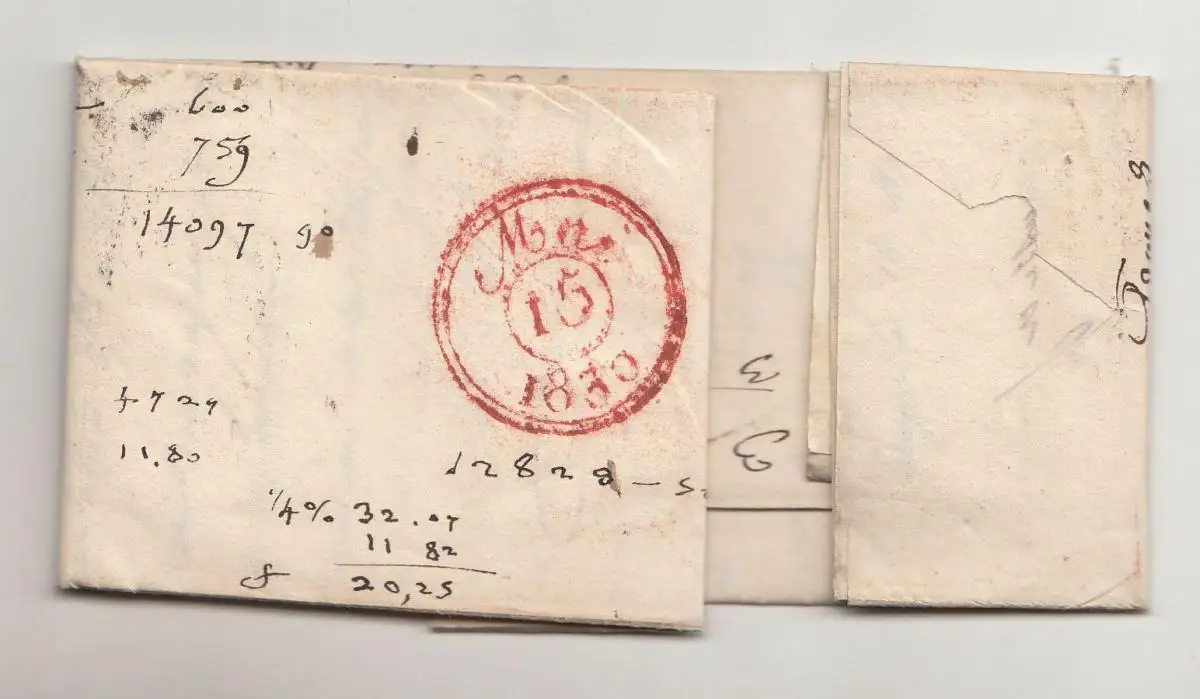 600
759
14097 90
Mai
15
1830
4729
11.80
12828 —
1/4% 32.07
11 82
f 20,25
3
3